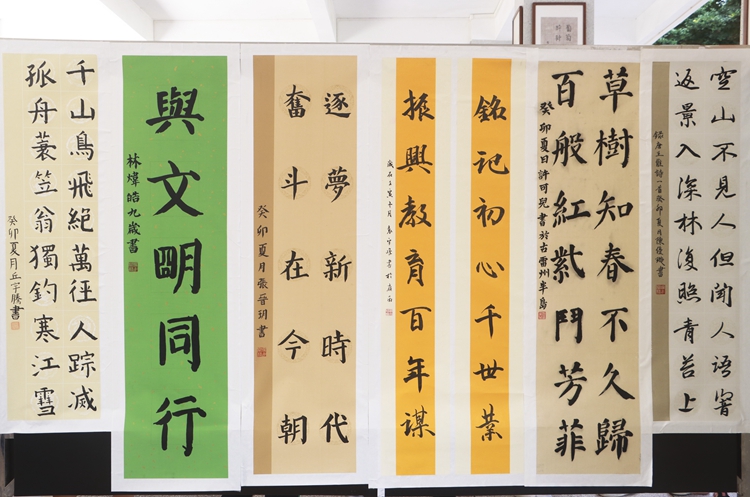 空山不見人但聞人語響
返景入深林復照青苔上
草樹知春不久歸
百般紅紫鬥芳菲
癸卯夏日許可兒書於古雷州半島
銘記初心千世業
振興教育百年謀
逐夢新時代
奮斗在今朝
癸卯夏月張晉玥書
與文明同行
林煒皓九歲書
千山鳥飛絕萬徑人踪滅
孤舟蓑笠翁獨釣寒江雪
癸卯夏月丘字騰書